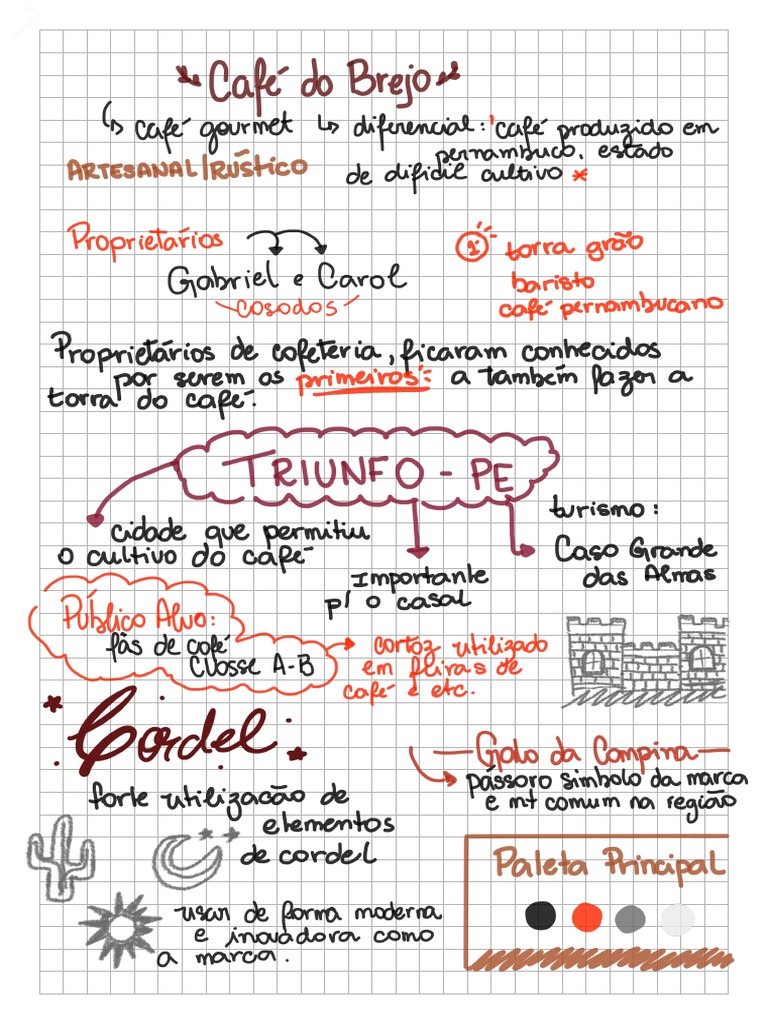 Café do Brejo
↳ café gourmet ↳ diferencial: café produzido em
pernambuco, estado
ARTESANAL/RÚSTICO
de difidil cultivo *
Proprietários
Gabriel e Carol
casados
1º torra grão
baristo
café pernambucano
Proprietários de cafeteria, ficaram conhecidos
por serem os primeiros a também fazer a
torra do café.
TRIUNFO - PE
cidade que permitiu
o cultivo do café
Importante
p/ o casal
turismo:
Casa Grande
das Almas
Público Alvo:
fãs de café
Classe A-B
cartaz utilizado
em feiras de
café e etc.
Cordel
forte utilização de
elementos
de cordel
usar de forma moderna
e inovadora como
a marca.
Galo da Campina
pássaro simbolo da marca
e mt comum na região
Paleta Principal